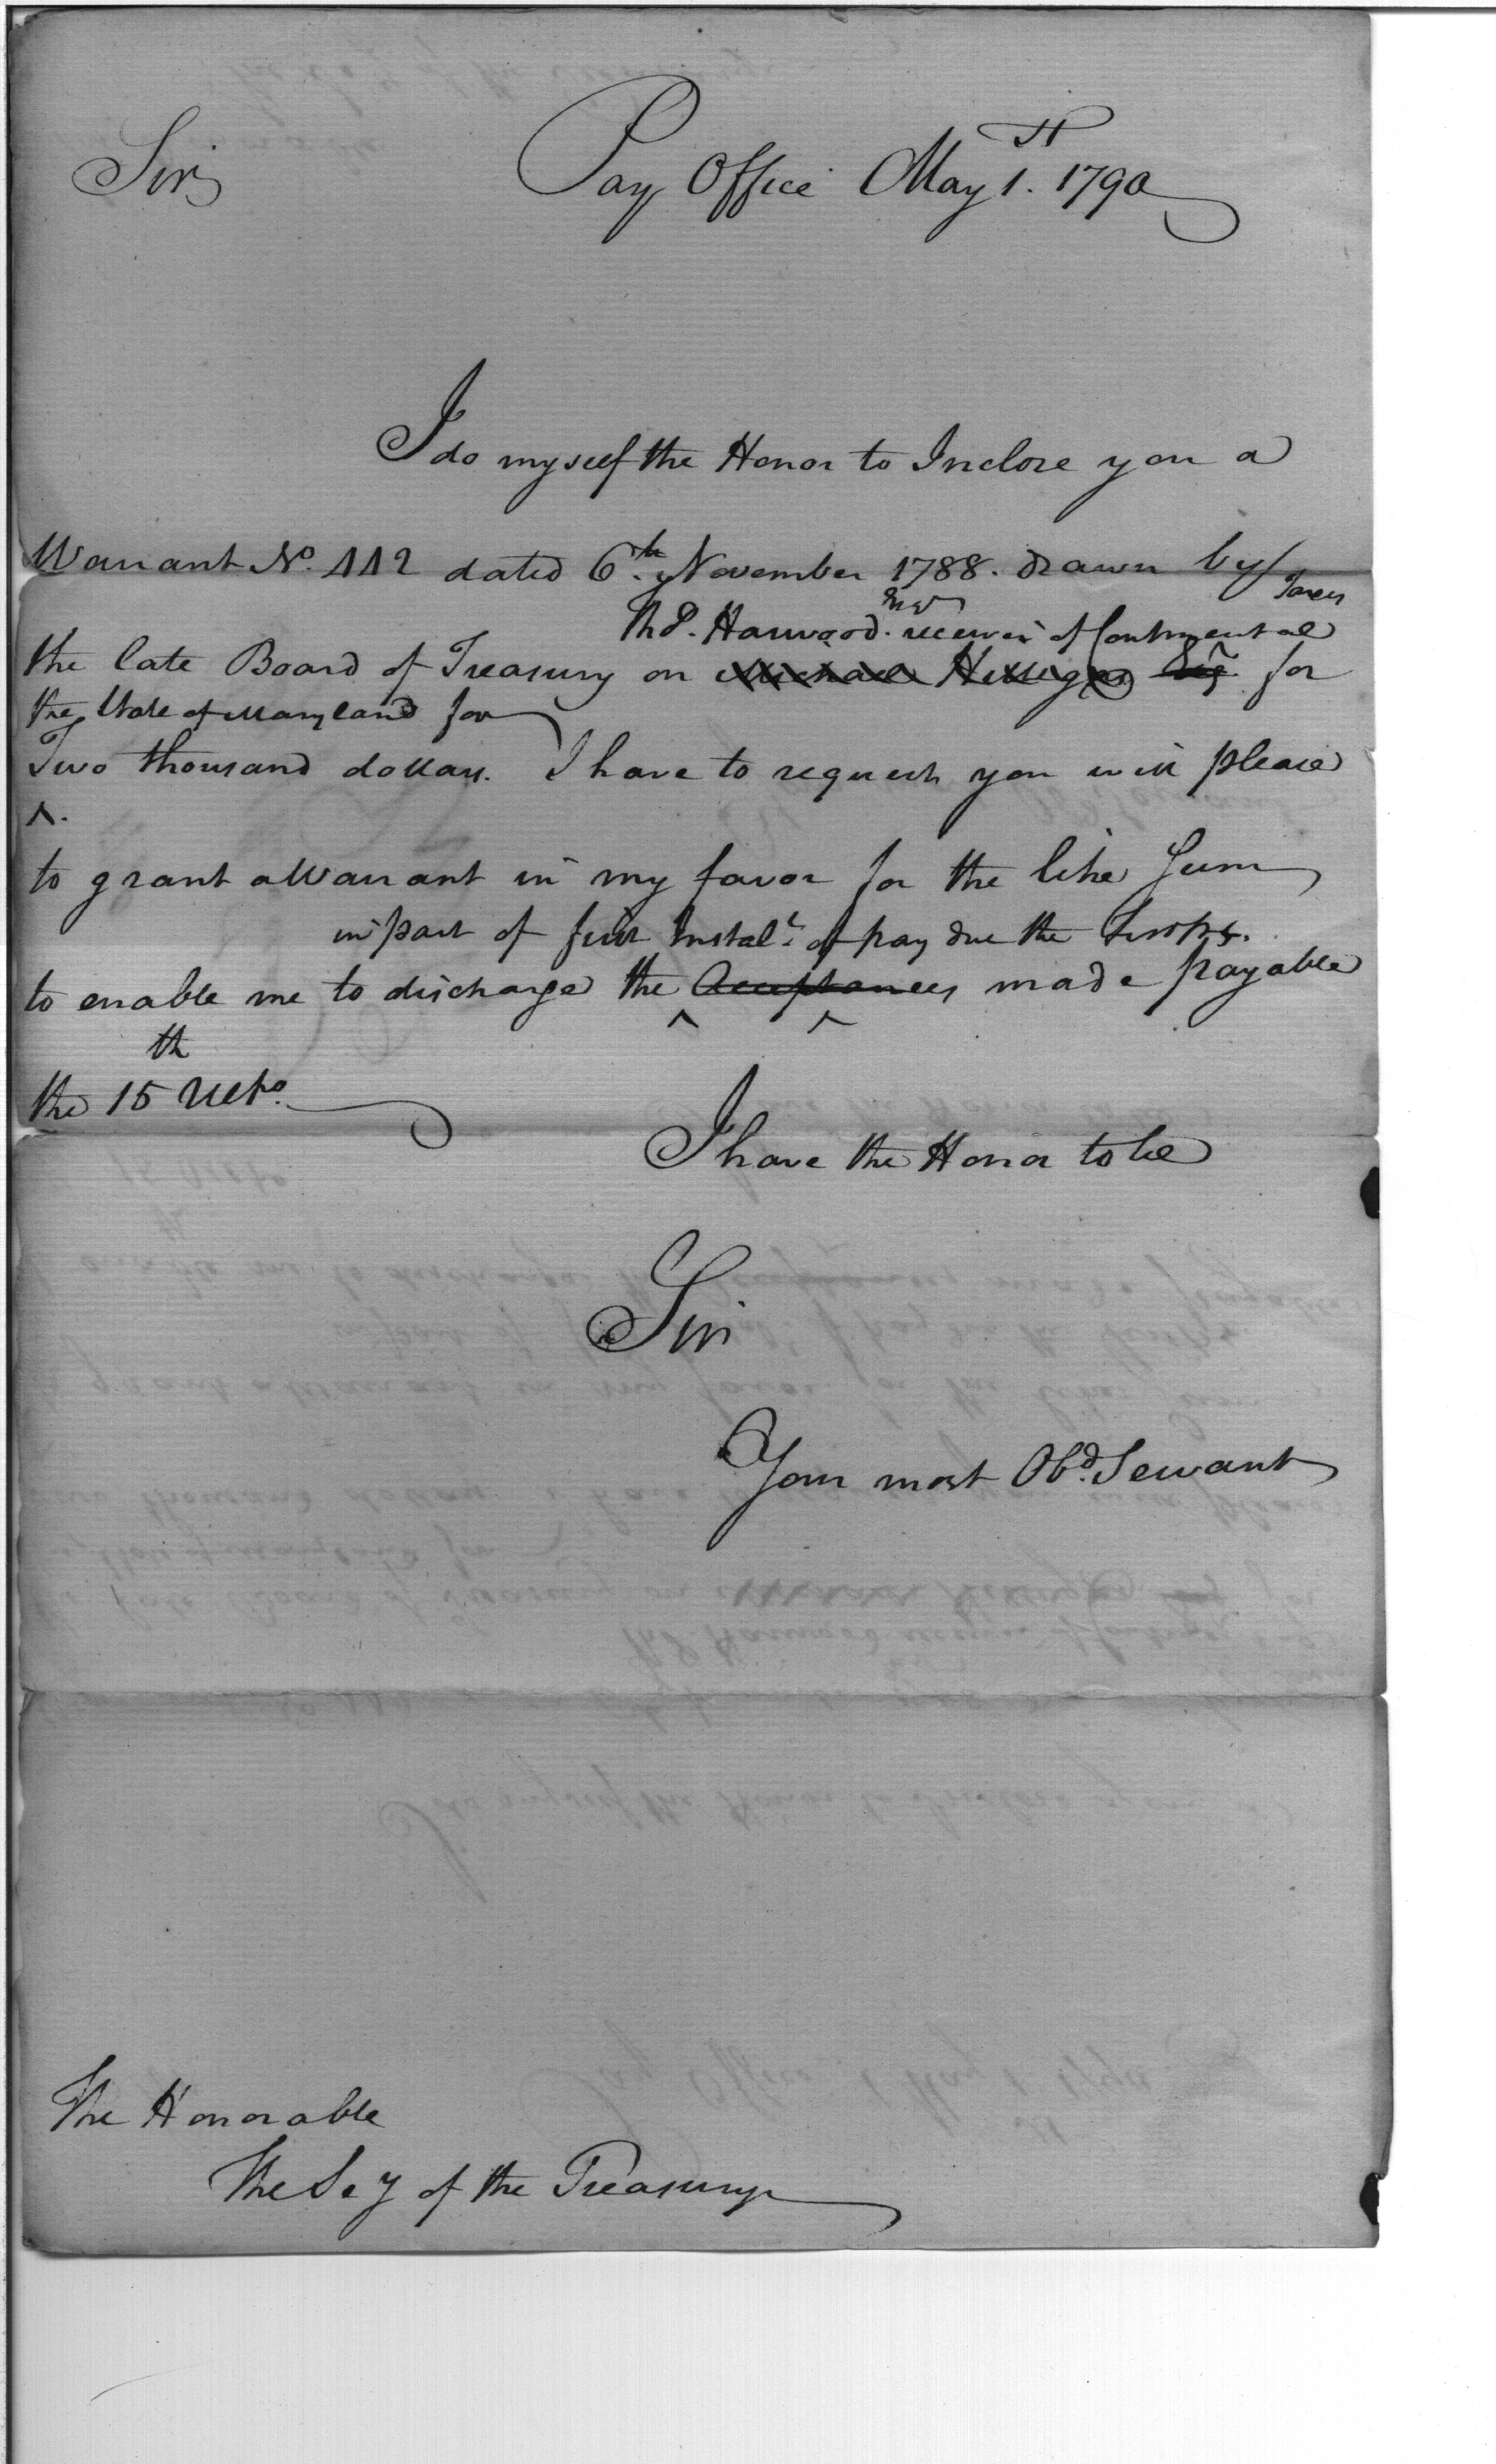 Sir, Pay Office May 1st. 1790
I do myself the Honor to Inclose you a
Warrant No. 112 dated 6th. November 1788. drawn by
Taxes
Esqr
Ths. Harwood. receiver of Continental
the late Board of Treasury on Michael Hillegas Esqr. for
the State of Maryland for
Two thousand dollars. I have to request you will please
^.
to grant a Warrant in my favor for the like Sum
in part of first Instalt. of pay due the troops.
to enable me to discharge the Acceptances made payable
^ ^
the 15th Ulto.
I have the Honor to be
Sir
Your most Obd. Servant
The Honorable
The Sey of the Treasury